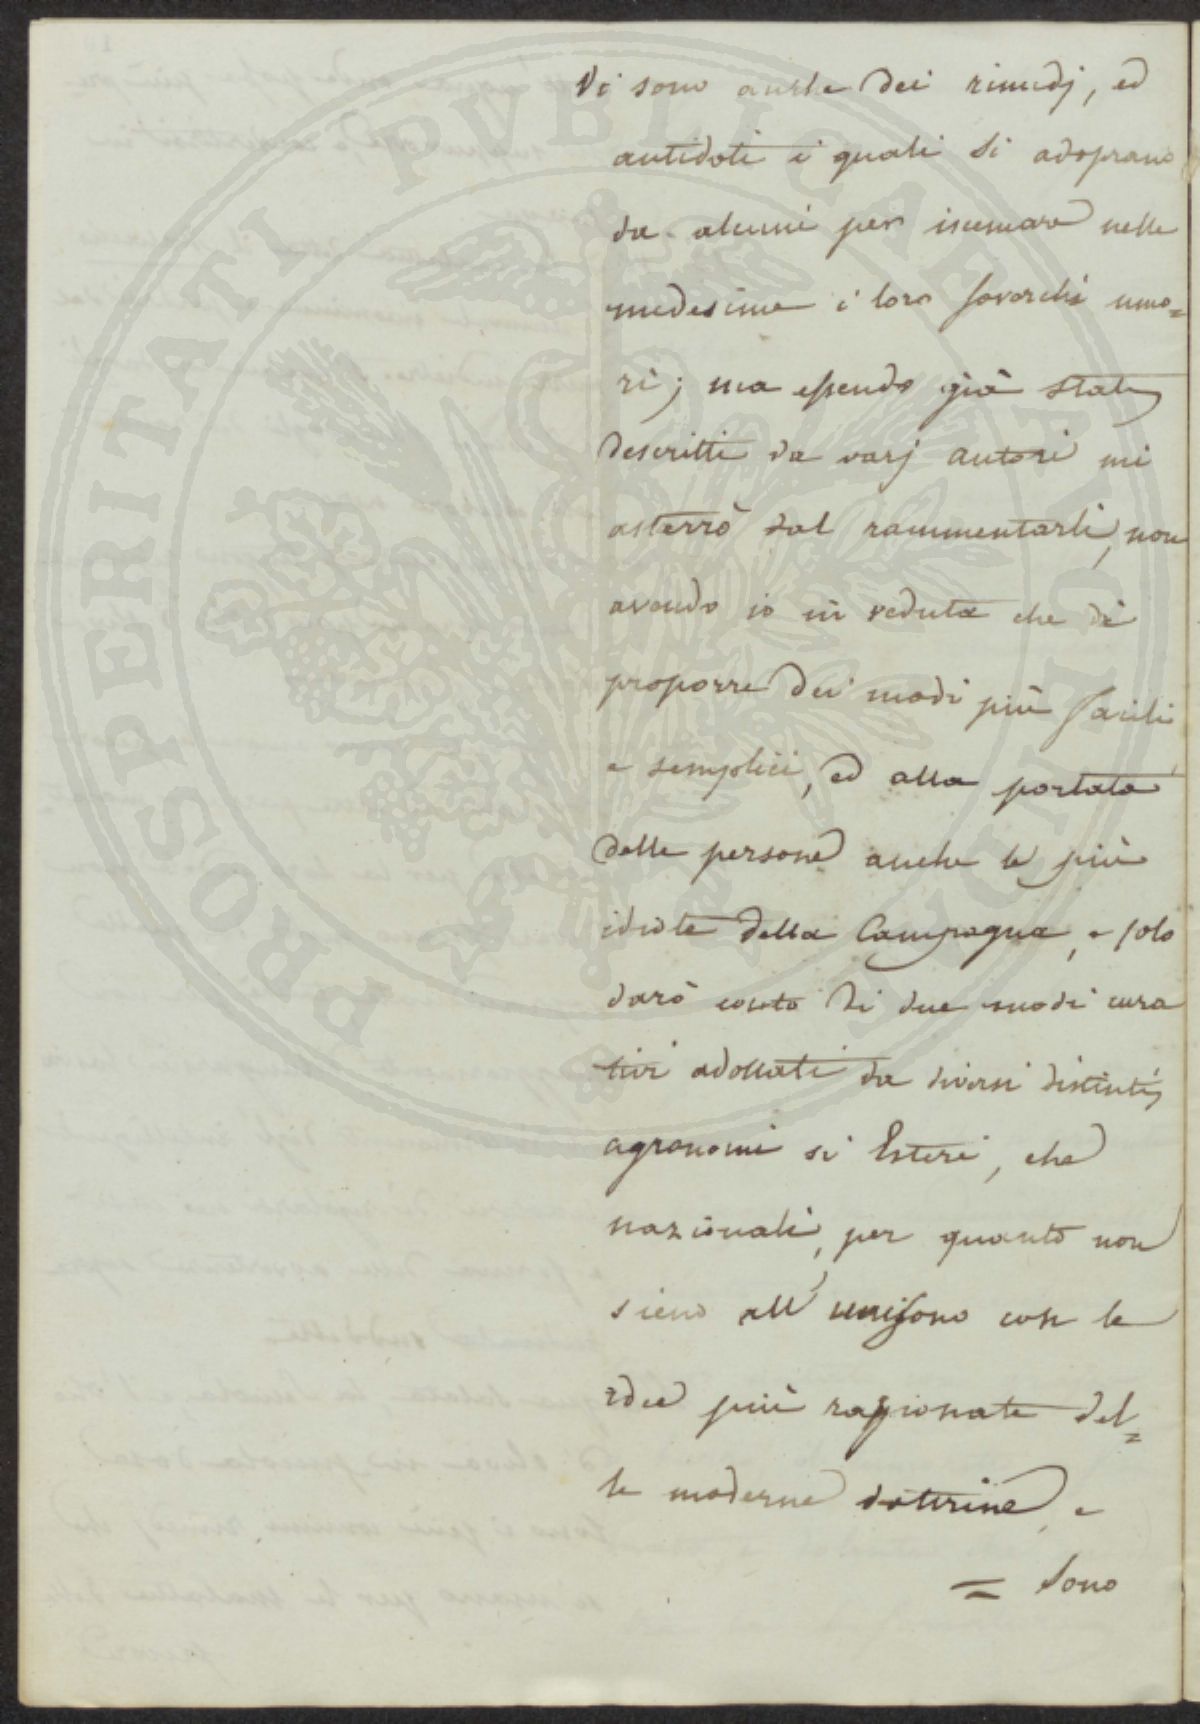 Vi sono anche dei rimedj, ed
antidoti i quali si adoprano
da alcuni per iscemare nelle
medesime i loro soverchi umo=
ri; ma essendo già stati
descritti da varj autori mi
asterrò dal rammentarli, non
avendo io in veduta che di
proporre dei modi più facili,
e semplici, ed alla portata
delle persone anche le più
idiote della Campagna, e solo
darò conto di due modi cura
tivi adottati da diversi distinti
agronomi sì Esteri, che
nazionali, per quanto non
sieno all'unisono con le
idee più ragionate del=
le moderne dottrine, e
= Sono
PROSPERITATI PVBLICAE AVGENDAE